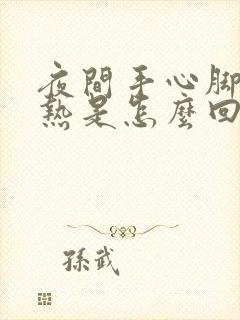 夜間手心腳
熱是怎麼回
孫武